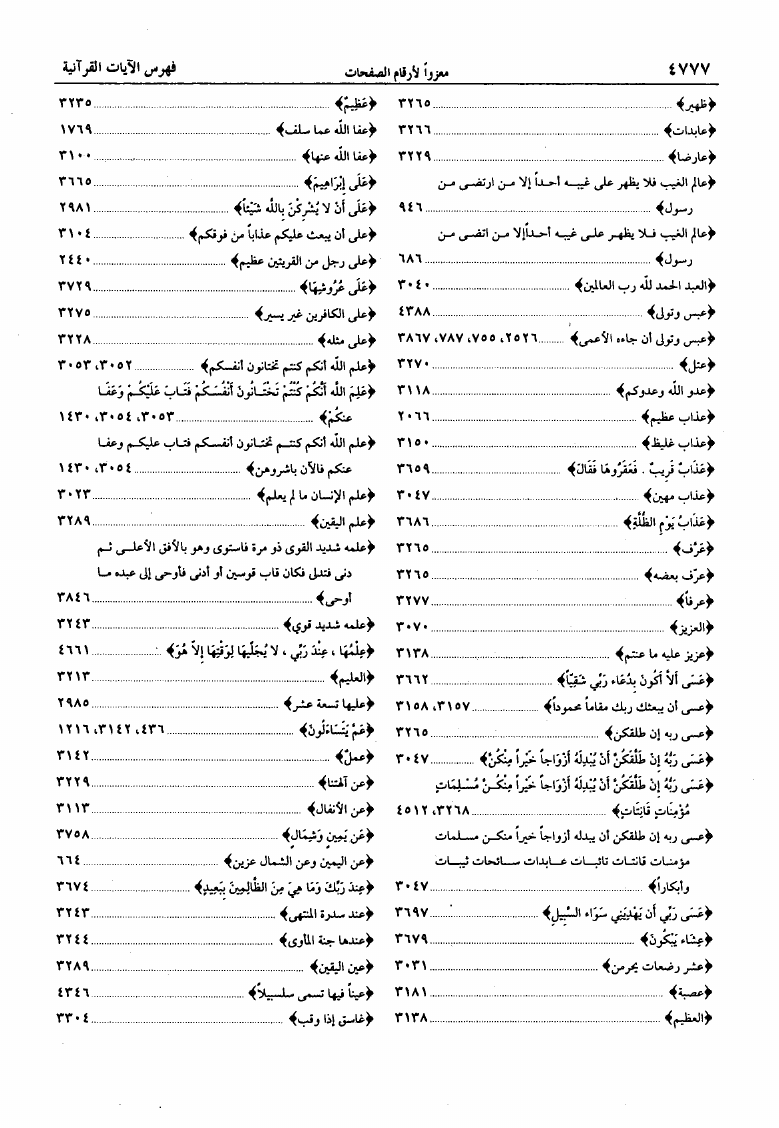 ٤٧٧٧ معزواً لأرقام الصفحات فهرس الآيات القرآنية
﴿ظهير﴾ ................ ٣٢٦٥
﴿عابدات﴾ ................ ٣٢٦٦
﴿عارضا﴾ ................ ٣٢٢٩
﴿عالم الغيب فلا يظهر على غيبه أحداً إلا من ارتضى من
رسول﴾ ................ ٩٤٦
﴿عالم الغيب فلا يظهر على غيبه أحداًإلا من اتضى من
رسول﴾ ................ ٦٨٦
﴿العبد الحمد لله رب العالمين﴾ ................ ٣٠٤٠
﴿عبس وتولى﴾ ................ ٤٣٨٨
﴿عبس وتولى أن جاءه الأعمى﴾ ......... ٢٥٢٦، ٧٥٥، ٧٨٧، ٣٨٦٧
﴿عتل﴾ ................ ٣٢٧٠
﴿عدو الله وعدوكم﴾ ................ ٣١١٨
﴿عذاب عظيم﴾ ................ ٢٠٦٦
﴿عذاب غليظ﴾ ................ ٣١٥٠
﴿عَذَابٌ قَرِيبٌ . فَعَقَرُوهَا فَقَالَ﴾ ................ ٣٦٥٩
﴿عذاب مهين﴾ ................ ٣٠٤٧
﴿عَذَابُ يَوْمِ الظُّلَّةِ﴾ ................ ٣٦٨٦
﴿عَرَّف﴾ ................ ٣٢٦٥
﴿عرّف بعضه﴾ ................ ٣٢٦٥
﴿عرفاً﴾ ................ ٣٢٧٧
﴿العزيز﴾ ................ ٣٠٧٠
﴿عزيز عليه ما عنتم﴾ ................ ٣١٣٨
﴿عَسَى أَلاَّ أَكُونَ بِدُعَاء رَبِّي شَقِيّاً﴾ ................ ٣٦٦٢
﴿عسى أن يبعثك ربك مقاماً محموداً﴾ ................ ٣١٥٧، ٣١٥٨
﴿عسى ربه إن طلقكن﴾ ................ ٣٢٦٥
﴿عَسَى رَبُّهُ إِنْ طَلَّقَكُنَّ أَنْ يُبْدِلَهُ أَزْوَاجاً خَيْراً مِنْكُنَّ﴾ ......... ٣٠٤٧
﴿عَسَى رَبُّهُ إِنْ طَلَّقَكُنَّ أَنْ يُبْدِلَهُ أَزْوَاجاً خَيْراً مِنْكُنَّ مُسْلِمَاتٍ
مُؤْمِنَاتٍ قَانِتَاتٍ﴾ ................ ٣٢٦٨، ٤٥١٢
﴿عسى ربه إن طلقكن أن يبدله أزواجاً خيراً منكن مسلمات
مؤمنات قانتات تائبات عابدات سائحات ثيبات
وأبكاراً﴾ ................ ٣٠٤٧
﴿عَسَى رَبِّي أَن يَهْدِيَنِي سَوَاء السَّبِيلِ﴾ ................ ٣٦٩٧
﴿عِشَاء يَبْكُونَ﴾ ................ ٣٦٧٩
﴿عشر رضعات يحرمن﴾ ................ ٣٠٣١
﴿عصبة﴾ ................ ٣١٨١
﴿العظيم﴾ ................ ٣١٣٨
﴿عَظِيمٌ﴾ ................ ٣٢٣٥
﴿عفا الله عما سلف﴾ ................ ١٧٦٩
﴿عفا الله عنها﴾ ................ ٣١٠٠
﴿عَلَى إِبْرَاهِيمَ﴾ ................ ٣٦٦٥
﴿عَلَى أَنْ لا يُشْرِكْنَ بِاللَّه شَيْئاً﴾ ................ ٢٩٨١
﴿على أن يبعث عليكم عذاباً من فوقكم﴾ ................ ٣١٠٤
﴿على رجل من القريتين عظيم﴾ ................ ٢٤٤٠
﴿عَلَى عُرُوشِهَا﴾ ................ ٣٧٢٩
﴿على الكافرين غير يسير﴾ ................ ٣٢٧٥
﴿على مثله﴾ ................ ٣٢٢٨
﴿علم الله أنكم كنتم تختانون أنفسكم﴾ ................ ٣٠٥٢، ٣٠٥٣
﴿عَلِمَ اللَّه أَنَّكُمْ كُنْتُمْ تَخْتَانُونَ أَنْفُسَكُمْ فَتَابَ عَلَيْكُمْ وَعَفَا
عنكُمْ﴾ ................ ٣٠٥٣، ٣٠٥٤، ١٤٣٠
﴿علم الله أنكم كنتم تختانون أنفسكم فتاب عليكم وعفا
عنكم فالآن باشروهن﴾ ................ ٣٠٥٤، ١٤٣٠
﴿علم الإنسان ما لم يعلم﴾ ................ ٣٠٢٣
﴿علم اليقين﴾ ................ ٣٢٨٩
﴿علمه شديد القوى ذو مرة فاستوى وهو بالأفق الأعلى ثم
دنى فتدلى فكان قاب قوسين أو أدنى فأوحى إلى عبده ما
أوحى﴾ ................ ٣٨٤٦
﴿علمه شديد قوي﴾ ................ ٣٢٤٣
﴿عِلْمُهَا ، عِنْدَ رَبِّي ، لا يُجَلِّيهَا لِوَقْتِهَا إِلاَّ هُوَ﴾ ................ ٤٦٦١
﴿العليم﴾ ................ ٣٢١٣
﴿عليها تسعة عشر﴾ ................ ٢٩٨٥
﴿عَمَّ يَتَسَاءَلُونَ﴾ ................ ٤٣٦، ٣١٤٢، ١٢١٦
﴿عملٌ﴾ ................ ٣١٤٢
﴿عن آلهتنا﴾ ................ ٣٢٢٩
﴿عن الأنفال﴾ ................ ٣١١٣
﴿عَن يَمِينٍ وَشِمَالٍ﴾ ................ ٣٧٥٨
﴿عن اليمين وعن الشمال عزين﴾ ................ ٦٦٤
﴿عِندَ رَبِّكَ وَمَا هِيَ مِنَ الظَّالِمِينَ بِبَعِيدٍ﴾ ................ ٣٦٧٤
﴿عند سدرة المنتهى﴾ ................ ٣٢٤٣
﴿عندها جنة المأوى﴾ ................ ٣٢٤٤
﴿عين اليقين﴾ ................ ٣٢٨٩
﴿عيناً فيها تسمى سلسبيلاً﴾ ................ ٤٣٤٦
﴿غاسق إذا وقب﴾ ................ ٣٣٠٤